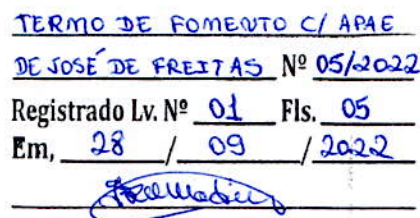 TERMO DE FOMENTO C/ APAE
DE JOSÉ DE FREITAS Nº 05/2022
Registrado Lv. Nº 01 Fls. 05
Em, 28 / 09 / 2022